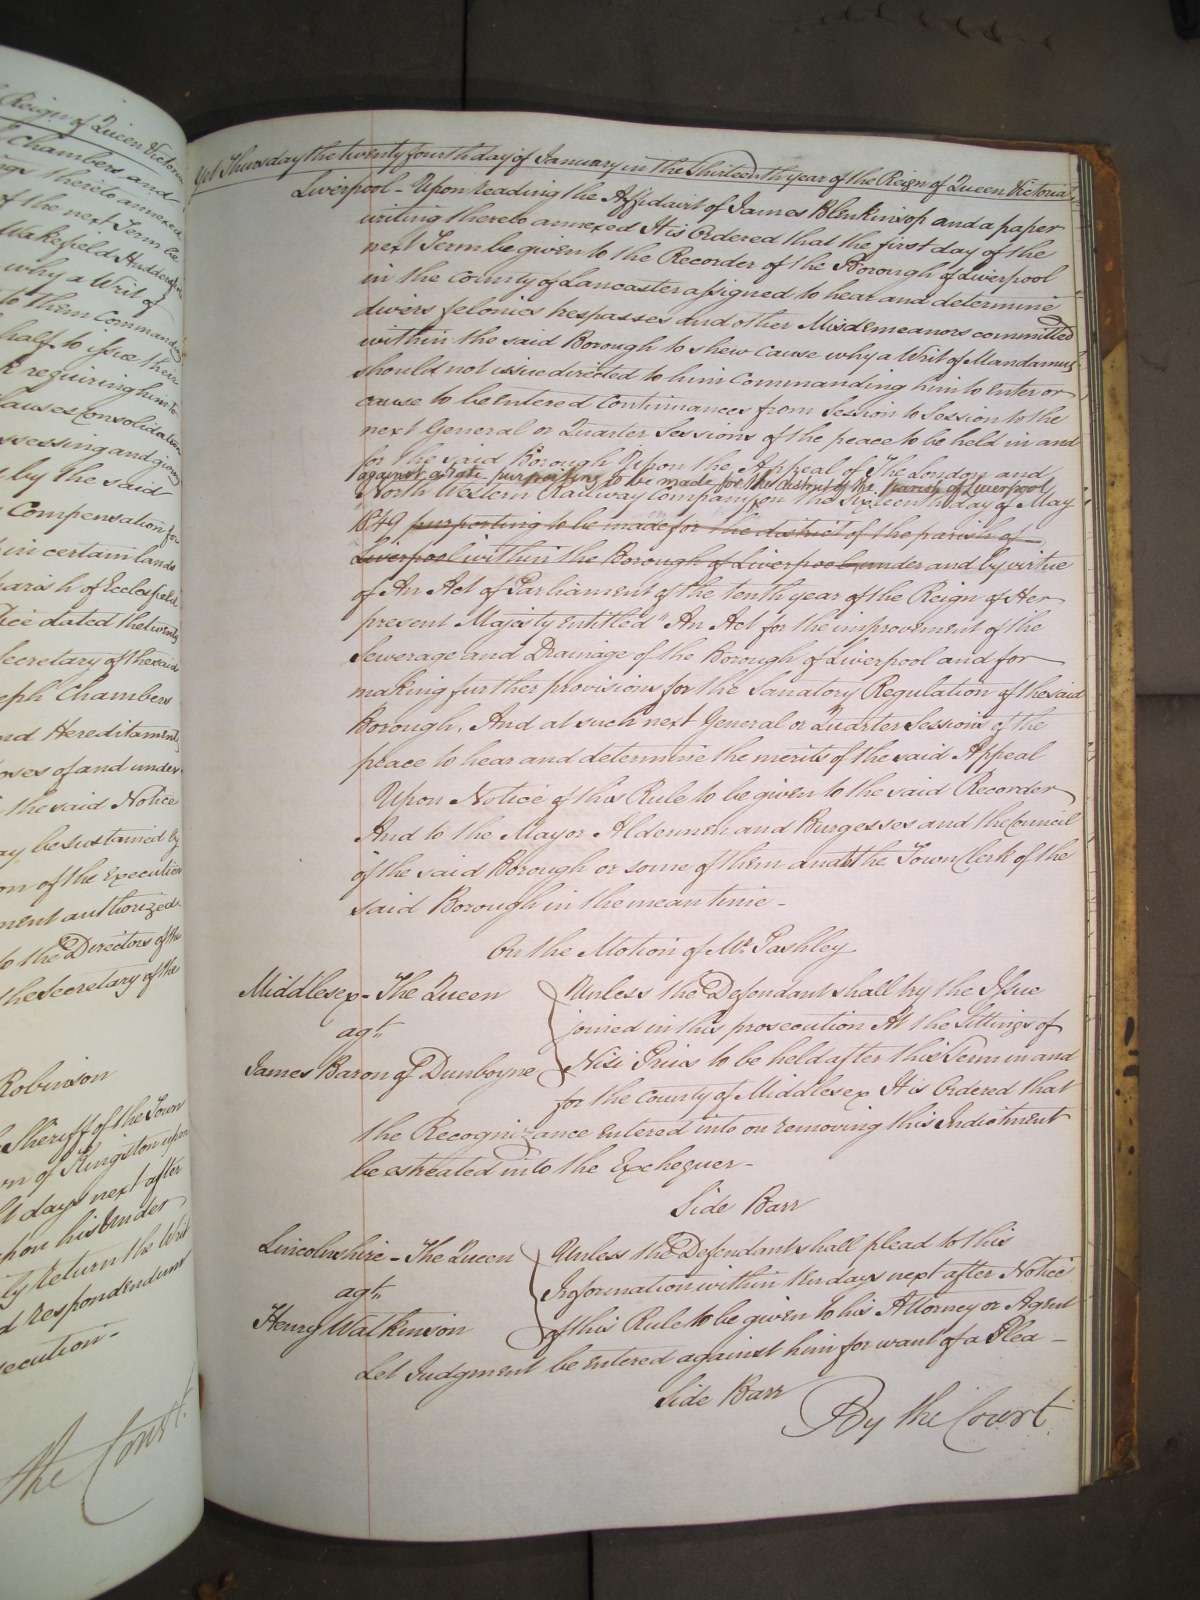 Reign of Queen Victoria
Chambers and
thereto annexed
of the next Term be
Wakefield Huddersfield
why a Writ of
to them Commanding
half to issue their
requiring him to
Clauses Consolidation
assessing and giving
by the said
Compensation for
in certain lands
parish of Ecclesfield
dated the twenty
Secretary of the said
Joseph Chambers
and Hereditaments
of and under
the said Notice
may be sustained by
of the Execution
authorized
to the Directors of the
the Secretary of the
Robinson
Sheriff of the Town
of Kingston upon
days next after
upon his Under
return the Writ
respondendum
The Court
Yet Thursday the twenty fourth day of January in the Thirteenth year of the Reign of Queen Victoria
Liverpool - Upon reading the Affidavit of James Blenkinsop and a paper
writing thereto annexed It is Ordered that the first day of the
next Term be given to the Recorder of the Borough of Liverpool
in the County of Lancaster assigned to hear and determine
divers felonies trespasses and other Misdemeanors committed
within the said Borough to shew cause why a Writ of Mandamus
should not issue directed to him Commanding him to enter or
cause to be entered Continuances from Session to Session to the
next General or Quarter Sessions of the peace to be held in and
for the said Borough Upon the Appeal of The London and
against a rate purporting to be made for the district of the parish of Liverpool
North Western Railway Company on the Sixteenth day of May
1849 purporting to be made for the district of the parish of
Liverpool within the Borough of Liverpool under and by virtue
of An Act of Parliament of the tenth year of the Reign of Her
present Majesty entitled "An Act for the improvement of the
Sewerage and Drainage of the Borough of Liverpool and for
making further provisions for the Sanatory Regulation of the said
Borough, And at such next General or Quarter Sessions of the
peace to hear and determine the merits of the said Appeal
Upon Notice of this Rule to be given to the said Recorder
And to the Mayor Aldermen and Burgesses and the Council
of the said Borough or some of them and the Town Clerk of the
said Borough in the mean time -
On the Motion of Mr. Pashley
Middlesex - The Queen
agt.
James Baron of Dunboyne
Unless the Defendant shall try the Issue
joined in this prosecution At the Sittings of
Nisi Prius to be held after this Term in and
for the County of Middlesex It is Ordered that
the Recognizance entered into on removing this Indictment
be estreated into the Exchequer -
Side Barr
Lincolnshire - The Queen
agt.
Henry Watkinson
Unless the Defendant shall plead to this
Information within ten days next after Notice
of this Rule to be given to his Attorney or Agent
Let Judgment be entered against him for want of a Plea -
Side Barr
By the Court